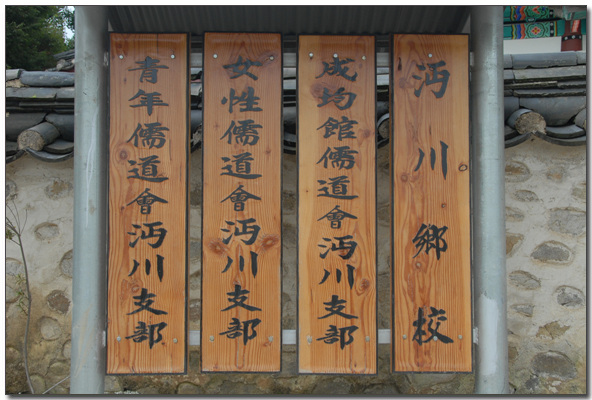 沔川鄕校
成均館儒道會沔川支部
女性儒道會沔川支部
青年儒道會沔川支部